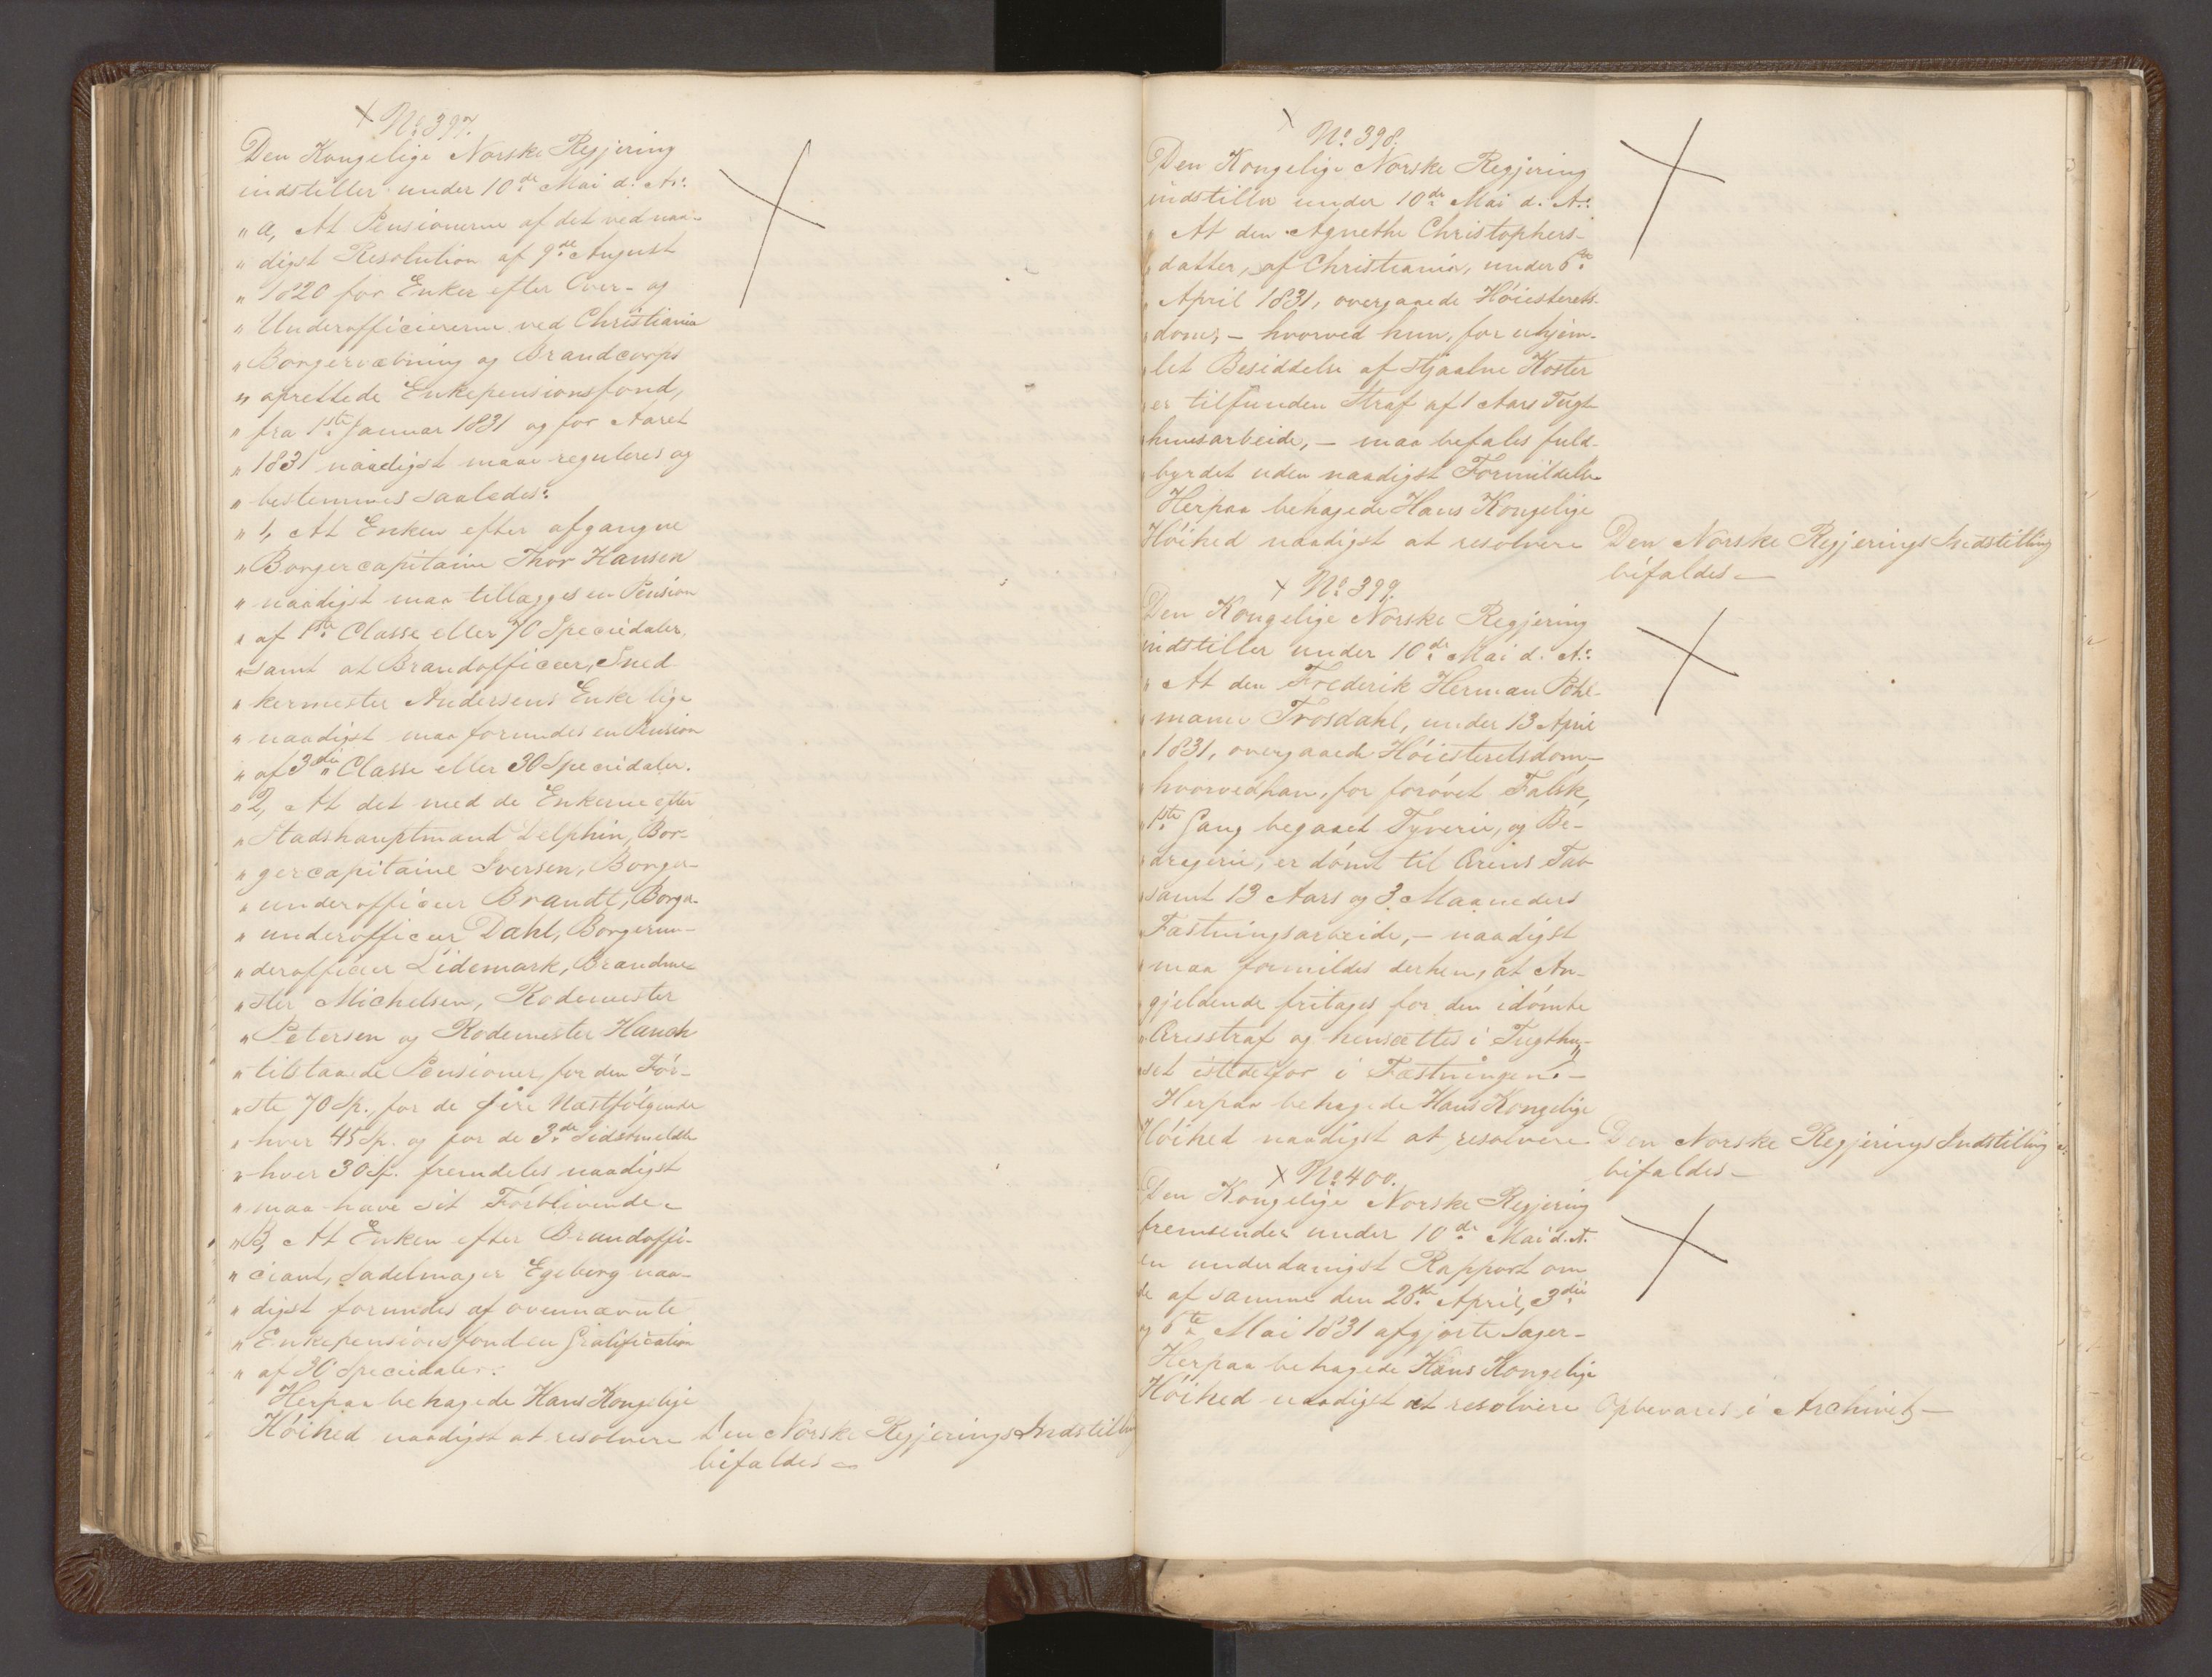 No 397.
Den Kongelige Norske Regjering
indstiller under 10de Mai d. A.:
" a, At Pensionerne af det ved naa-
" digst Resolution af 9de August
" 1820 for Enker efter Over- og
" Underofficiererne ved Christiania
" Borgervæbning og Brandcorps
" oprettede Enkepensionsfond,
" fra 1ste Januar 1831 og for Aaret
" 1831 naadigst maae reguleres og
" bestemmes saaledes:
" 1, At Enken efter afgangne
" Borgercapitaine Thor Hansen
" naadigst maa tillægges en Pension
" af 1ste Classe eller 70 Speciedaler,
" samt at Brandofficeer, Sned-
" kermester Andersens Enke lige
" naadigst maa forundes en Pension
" af 3die Classe eller 30 Speciedaler.
" 2, At det med de Enkerne efter
" Stadshauptmand Delphin, Bor-
" gercapitaine Iversen, Borger-
" underofficeer Brandt, Borger-
" underofficeer Dahl, Borgerun-
" derofficeer Lidemark, Brandme-
" ster Michelsen, Rodemester
" Petersen og Rodemester Hauch
" tilstaaede Pensioner, for den För-
" ste 70 Sp., for de fire Næstfölgende
" hver 45 Sp. og for de 3de Sidstmeldte
" hver 30 Sp. fremdeles naadigst
" maa have sit Forblivende.
" B, At Enken efter Brandoffi-
" ciant, Sadelmager Egeberg naa-
" digst forundes af ovennævnte
" Enkepensionsfond en Gratification
" af 30 Speciedaler.
Herpaa behagede Hans Kongelige
Höihed naadigst at resolvere Den Norske Regjerings Indstilling
bifaldes -
No 398.
Den Kongelige Norske Regjering
indstiller under 10de Mai d. A.:
" At den Agnethe Christophers-
" datter, af Christiania, under 6te
" April 1831, overgaaede Höiesterets-
" dom, - hvorved hun, for uhjem-
" let Besiddelse af stjaalne Koster
" er tilfunden Straf af 1 Aars Tugt-
" huusarbeide, - maa befales fuld-
" byrdet uden naadigst Formildelse
Herpaa behagede Hans Kongelige
Höihed naadigst at resolvere Den Norske Regjerings Indstilling
bifaldes -
No 399.
Den Kongelige Norske Regjering
indstiller under 10de Mai d. A.:
" At den Frederik Herman Pohl-
" mann Trosdahl, under 13 April
" 1831, overgaaede Höiesteretsdom -
" hvorved han, for forövet Falsk,
" 1ste Gang begaaet Tyverie, og Be-
" dragerie, er dömt til Ærens Tab
" samt 13 Aars og 3 Maaneders
" Fæstningsarbeide, - naadigst
" maa formildes derhen, at An-
" gjeldende fritages for den idömte
" Æresstraf og hensættes i Tugthu-
" set istedetfor i Fæstningen. -
Herpaa behagede Hans Kongelige
Höihed naadigst at resolvere Den Norske Regjerings Indstilling
bifaldes -
No 400.
Den Kongelige Norske Regjering
fremsender under 10de Mai d. A.
en underdanigst Rapport om
de af samme den 26de April, 3die
og 6te Mai 1831 afgjorte Sager -
Herpaa behagede Hans Kongelige
Höihed naadigst at resolvere Opbevares i Archivet, -